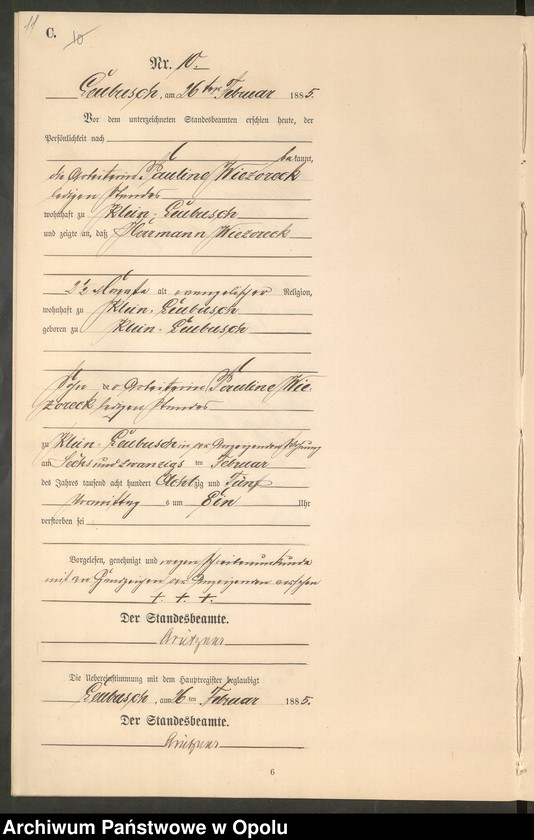 11
C.
10
Nr. 10.
Leubusch, am 26ten Februar 1885.
Vor dem unterzeichneten Standesbeamten erschien heute, der
Persönlichkeit nach
bekannt,
die Arbeiterin Pauline Wiezoreck
ledigen Standes
wohnhaft zu Klein-Leubusch
und zeigte an, daß Herrmann Wiezoreck
2½ Monate alt evangelischer Religion,
wohnhaft zu Klein-Leubusch
geboren zu Klein-Leubusch
Sohn der Arbeiterin Pauline Wie-
zoreck ledigen Standes
zu Klein-Leubusch in der Anzeigenden Wohnung
am Sechs und zwanzigs ten Februar
des Jahres tausend acht hundert Achtzig und Fünf
Vormittag s um Ein Uhr
verstorben sei
Vorgelesen, genehmigt und wegen Schreibensunkunde
mit den Handzeichen der Anzeigenden versehen
+ + +
Der Standesbeamte.
Die Uebereinstimmung mit dem Hauptregister beglaubigt
Leubusch, am 26 ten Februar 1885.
Der Standesbeamte.
6
Archiwum Państwowe w Opolu